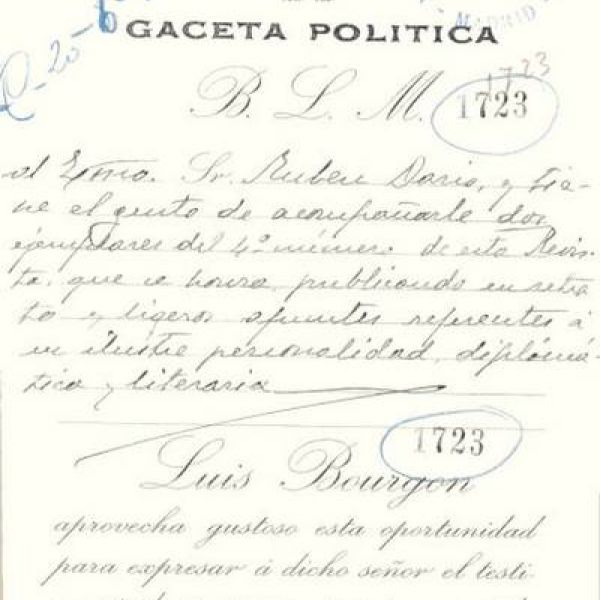 C-20-6
MADRID
GACETA POLITICA
1723
B. L. M. 1723
al Exmo. Sr. Ruben Dario, y tie-
ne el gusto de acompañarle dos
ejemplares del 4º número de esta Revis-
ta, que se honra publicando su retra
to y ligeros apuntes referentes á
su ilustre personalidad, diplomá-
tica y literaria
1723
Luis Bourgon
aprovecha gustoso esta oportunidad
para expresar á dicho señor el testi-